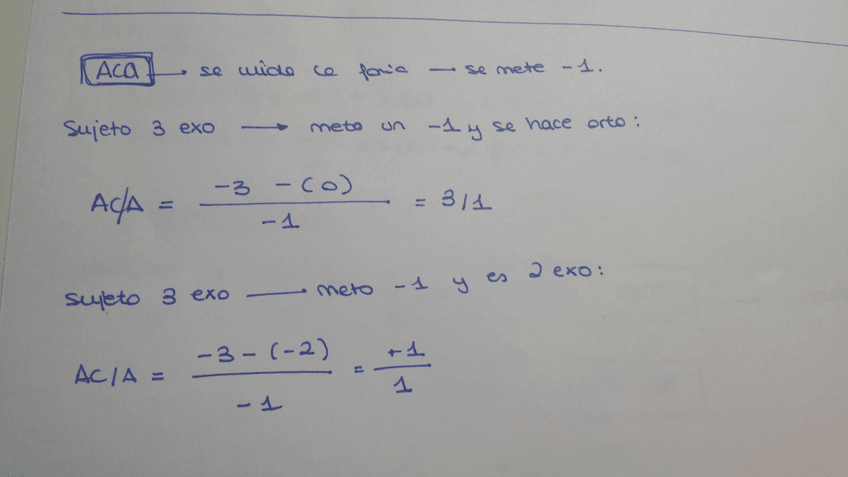 ACA → se mide la foria — se mete -1.
Sujeto 3 exo → meto un -1 y se hace orto:
AC/A = -3 -(0) / -1 = 3/1
Sujeto 3 exo — meto -1 y es 2 exo:
AC/A = -3-(-2) / -1 = +1 / 1